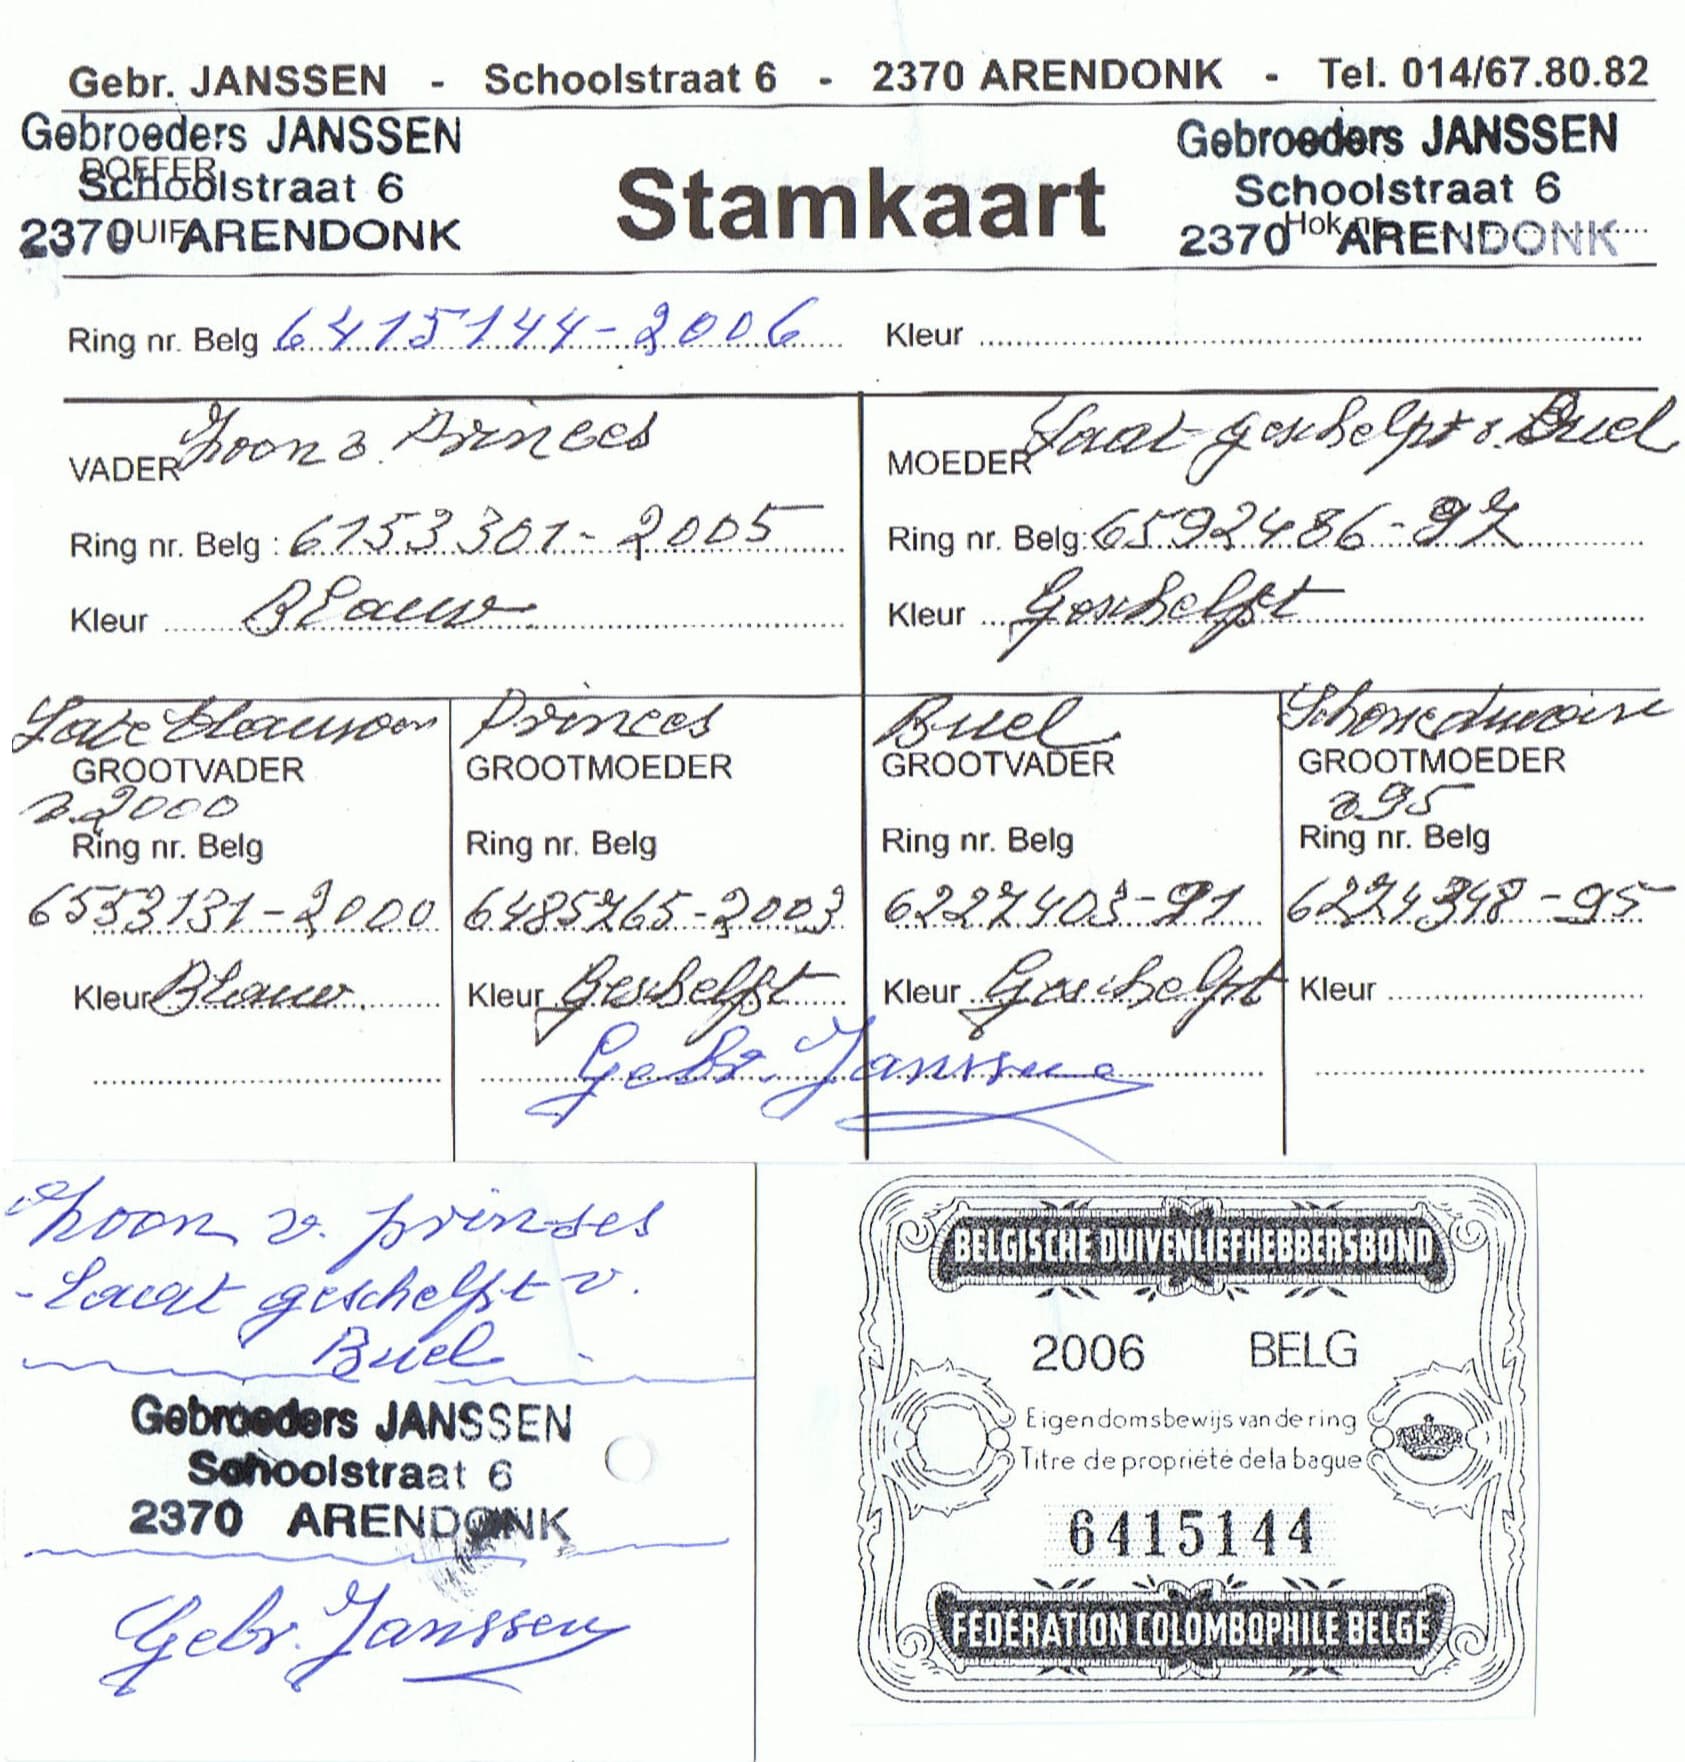 Gebr. JANSSEN - Schoolstraat 6 - 2370 ARENDONK - Tel. 014/67.80.82
Gebroeders JANSSEN
DOFFER
Schoolstraat 6
DUIF
2370 ARENDONK
Stamkaart
Gebroeders JANSSEN
Schoolstraat 6
Hok nr.
2370 ARENDONK
Ring nr. Belg 6415144-2006 Kleur
VADER Zoon v. Princes
Ring nr. Belg : 6153301-2005
Kleur Blauw
MOEDER Laat geschelpt v. Buel
Ring nr. Belg: 6592486-97
Kleur Geschelpt
Late Blauwen
GROOTVADER
v. 2000
Ring nr. Belg
6553131-2000
Kleur Blauw
Princes
GROOTMOEDER
Ring nr. Belg
6485765-2003
Kleur Geschelpt
Buel
GROOTVADER
Ring nr. Belg
6227403-91
Kleur Geschelpt
GROOTMOEDER
v 95
Ring nr. Belg
6274348-95
Kleur
Gebr. Janssen
Zoon v. prinses
- Laat geschelpt v.
Buel
Gebroeders JANSSEN
Schoolstraat 6
2370 ARENDONK
Gebr. Janssen
BELGISCHE DUIVENLIEFHEBBERSBOND
2006 BELG
Eigendomsbewijs van de ring
Titre de propriété de la bague
6415144
FEDERATION COLOMBOPHILE BELGE